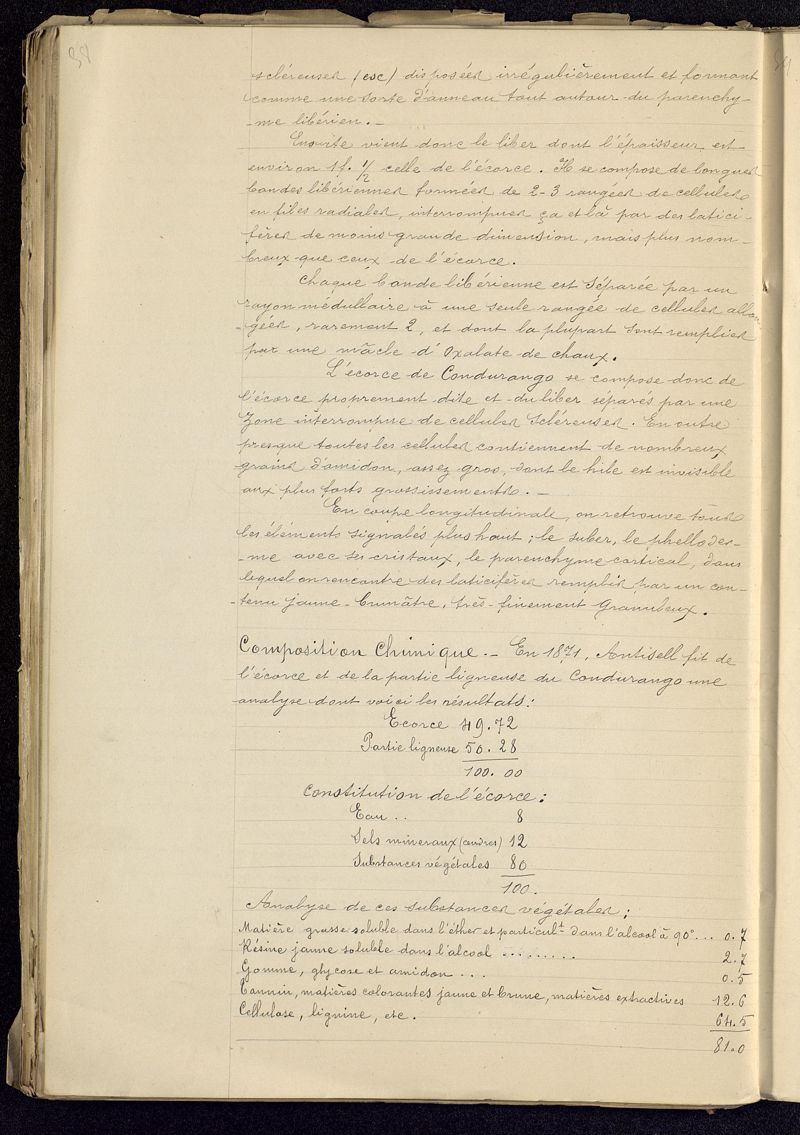 88
scléreuses (esc) disposées irrégulièrement et formant
comme une sorte d'anneau tout autour du parenchy-
-me libérien. -
Ensuite vient donc le liber dont l'épaisseur est
environ 1 f. 1/2 celle de l'écorce. Il se compose de longues
bandes libériennes formées de 2-3 rangées de cellules
en files radiales, interrompues ça et là par des latici-
fères de moins grande dimension, mais plus nom-
breux que ceux de l'écorce.
Chaque bande libérienne est séparée par un
rayon médullaire à une seule rangée de cellules allon-
-gées, rarement 2, et dont la plupart sont remplies
par une mâcle d'Oxalate de chaux.
L'écorce de Condurango se compose donc de
l'écorce proprement dite et du liber séparés par une
zone interrompue de cellules scléreuses. En outre
presque toutes les cellules contiennent de nombreux
grains d'amidon, assez gros, dont le hile est invisible
aux plus forts grossissements. -
En coupe longitudinale, on retrouve tous
les éléments signalés plus haut; le suber, le phelloder-
-me avec ses cristaux, le parenchyme cortical, dans
lequel on rencontre des laticifères remplis par un con-
-tenu jaune-brunâtre, très-finement granuleux.
Composition Chimique. - En 1871, Antisell fit de
l'écorce et de la partie ligneuse du Condurango une
analyse dont voici les résultats:
Ecorce 49.72
Partie ligneuse 50.28
100.00
Constitution de l'écorce:
Eau .. 8
Sels minéraux (cendres) 12
Substances végétales 80
100.
Analyse de ces substances végétales:
Matière grasse soluble dans l'éther et particult dans l'alcool à 90° ... 0.7
Résine jaune soluble dans l'alcool ......... 2.7
Gomme, glycose et amidon ... 0.5
Tannin, matières colorantes jaune et brune, matières extractives 12.6
Cellulose, lignine, etc. 64.5
81.0